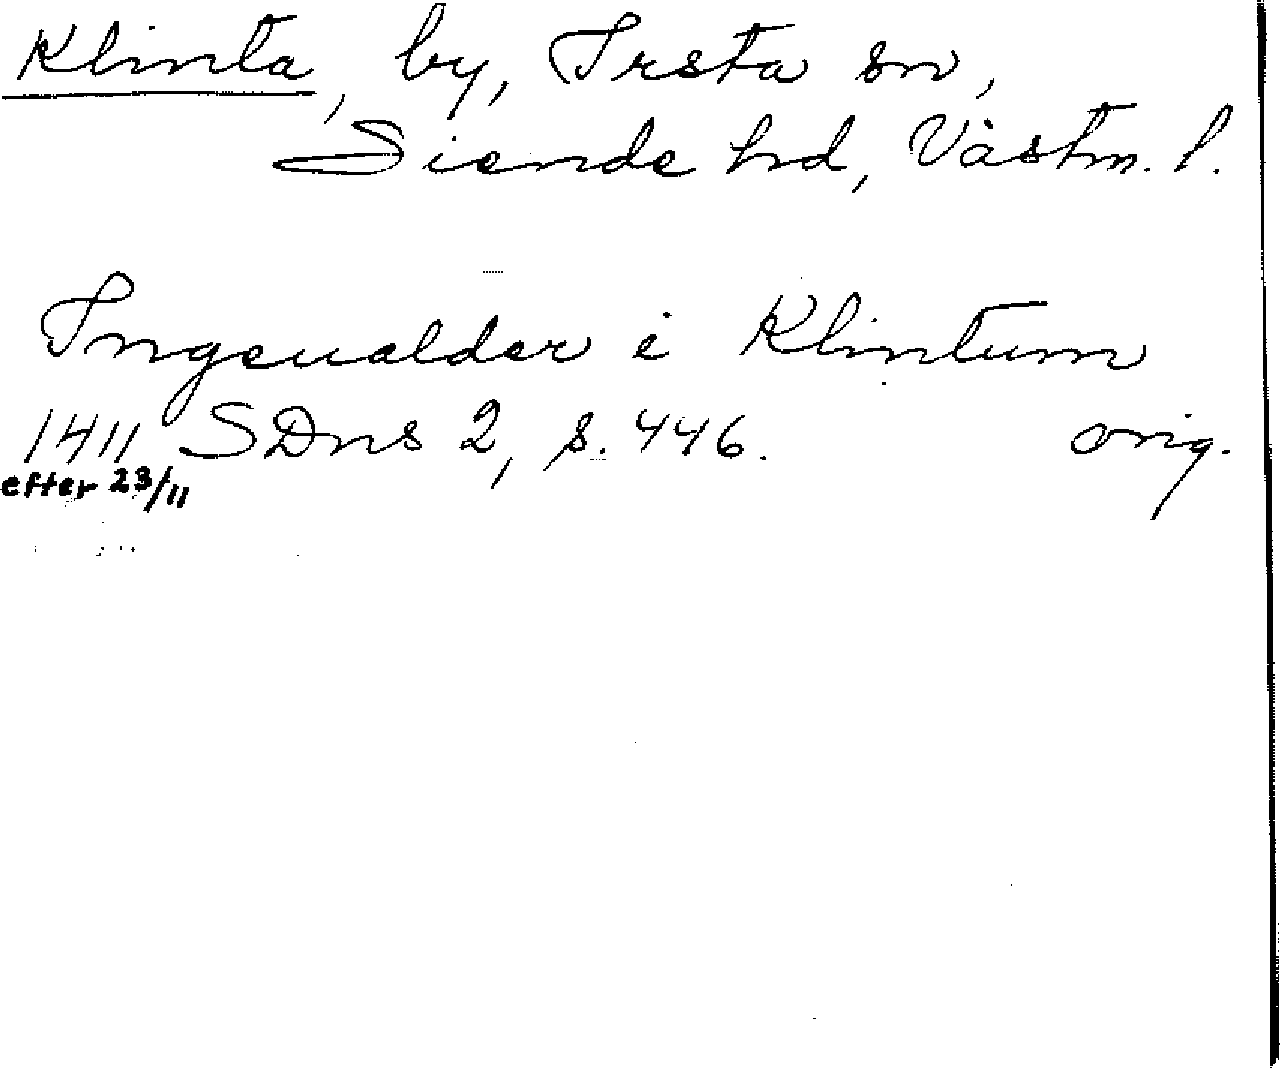 Klinta, by, Irsta sn,
Siende hd, Västm. l.
Ingeualder i Klintum
1411 SDns 2, s. 446. orig.
efter 23/11